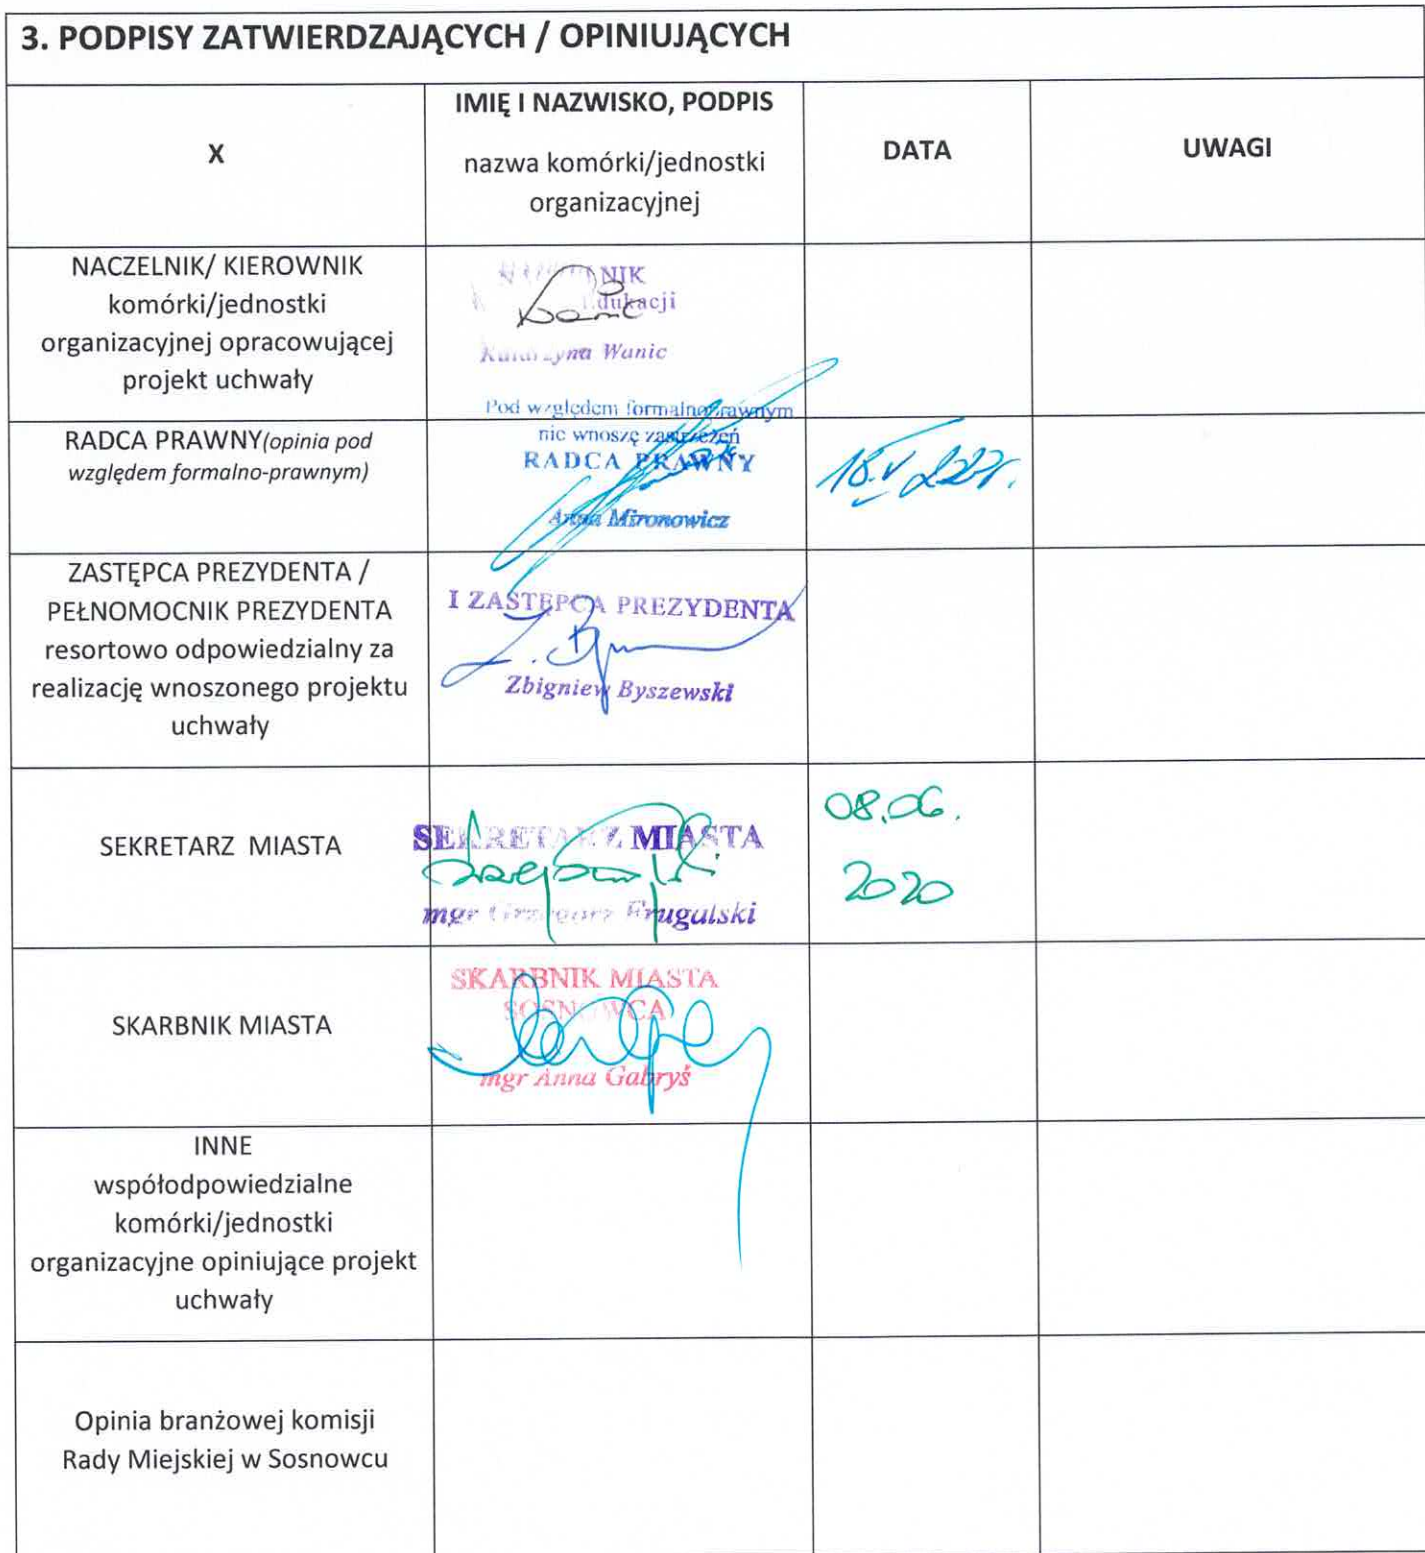 3. PODPISY ZATWIERDZAJĄCYCH / OPINIUJĄCYCH
X
IMIĘ I NAZWISKO, PODPIS
nazwa komórki/jednostki
organizacyjnej
DATA
UWAGI
NACZELNIK/ KIEROWNIK
komórki/jednostki
organizacyjnej opracowującej
projekt uchwały
Edukacji
Katarzyna Wanic
RADCA PRAWNY(opinia pod
względem formalno-prawnym)
Pod względem formalno-prawnym
nie wnoszę zastrzeżeń
RADCA PRAWNY
Anna Mironowicz
18.V
ZASTĘPCA PREZYDENTA /
PEŁNOMOCNIK PREZYDENTA
resortowo odpowiedzialny za
realizację wnoszonego projektu
uchwały
I ZASTĘPCA PREZYDENTA
Zbigniew Byszewski
SEKRETARZ MIASTA
SEKRETARZ MIASTA
mgr Grzegorz Frugalski
08.06.
2020
SKARBNIK MIASTA
SKARBNIK MIASTA
SOSNOWCA
mgr Anna Gabryś
INNE
współodpowiedzialne
komórki/jednostki
organizacyjne opiniujące projekt
uchwały
Opinia branżowej komisji
Rady Miejskiej w Sosnowcu